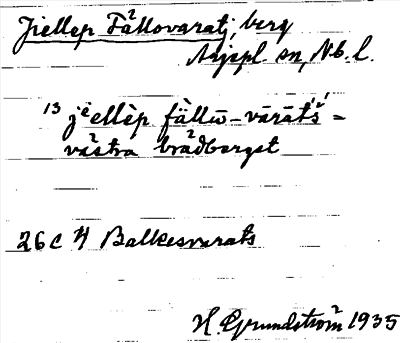 Jiellep Fällovaratj, berg
Arjepl. sn, Nb. l.
13 jiellèp fällū-vārāt's' =
västra brådberget
26 C 4 Balkesvarats
H. Grundström 1935